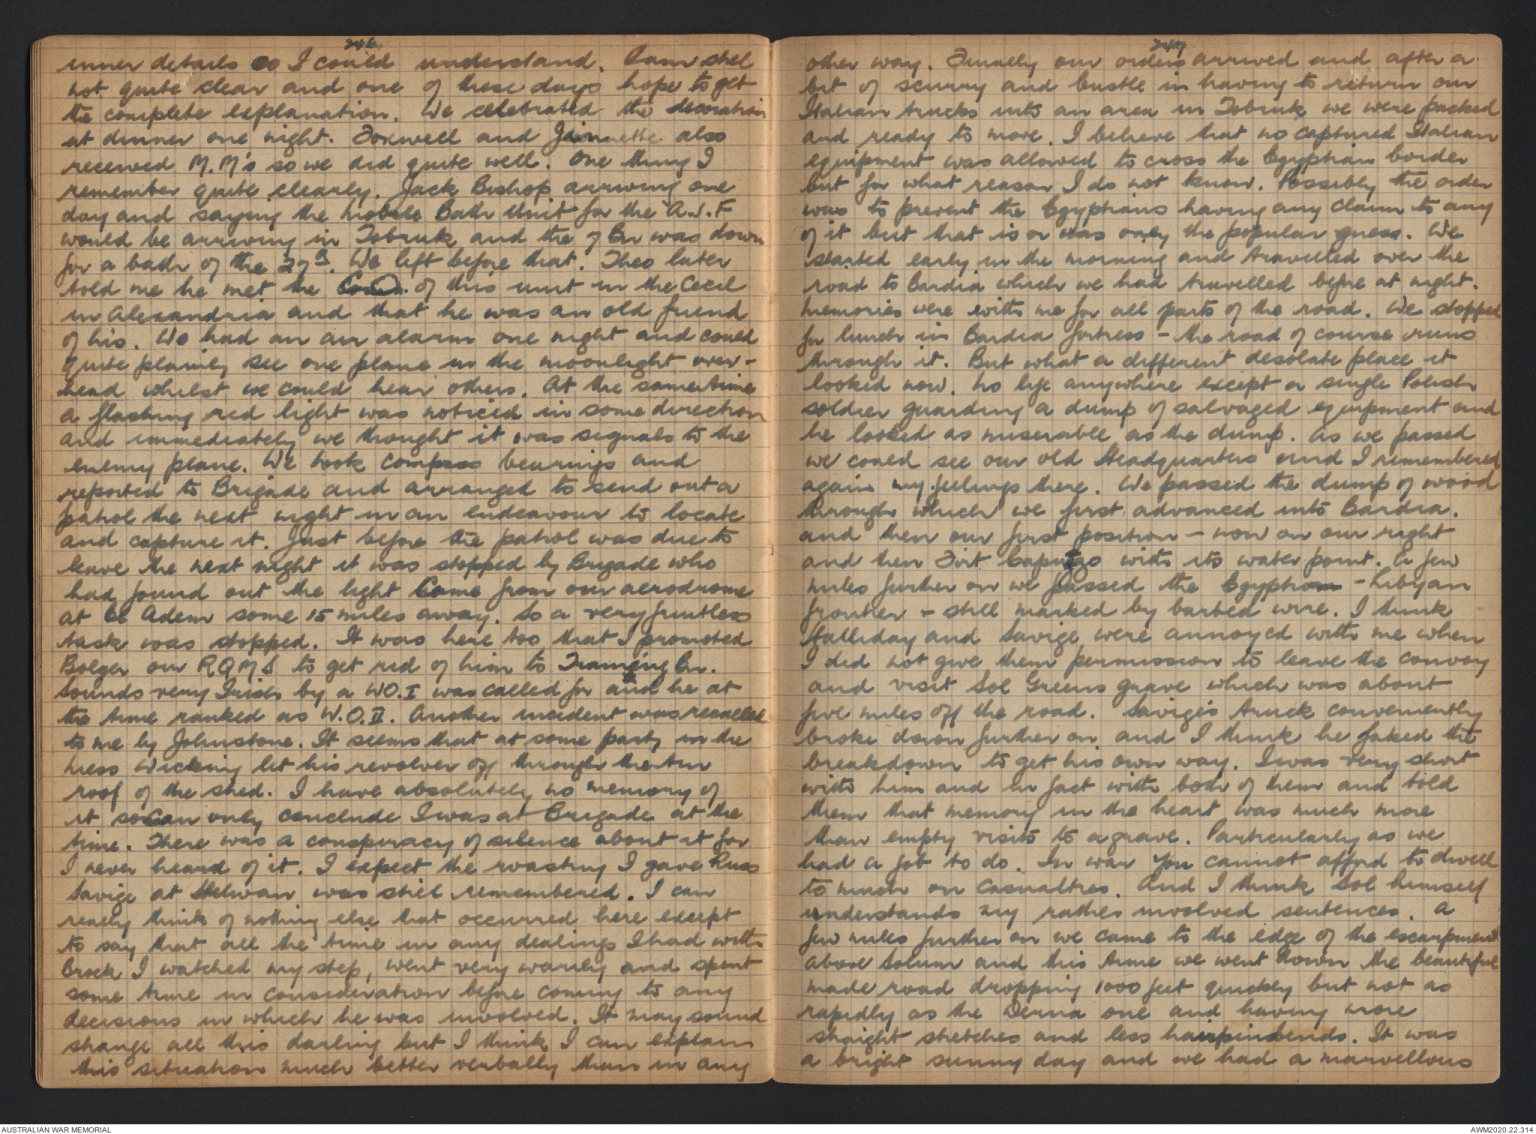 246
inner details as I could understand. I am still
not quite clear and one of these days hope to get
the complete explanation. We celebrated the decoration
at dinner one night. Forewell and Jeinnette also
received M.M's so we did quite well. One thing I
remember quite clearly. Jack Bishop arriving one
day and saying the Mobile Bath Unit for the A.I.F
would be arriving in Tobruk and the 7 Bn was down
for a bath of the 27th. We left before that. Theo later
told me he met the of this unit in the Cecil
in Alexandria and that he was an old friend
of his. We had an air alarm one night and could
quite plainly see one plane in the moonlight over-
head whilst we could hear others. At the same time
a flashing red light was noticed in some direction
and immediately we thought it was signals to the
enemy plane. We took compass bearings and
reported to Brigade and arranged to send out a
patrol the next night in an endeavour to locate
and capture it. Just before the patrol was due to
leave the next night it was stopped by Brigade who
had found out the light came from our aerodrome
at El Adem some 15 miles away. So a very fruitless
task was stopped. It was here too that I promoted
Bolger our RQMS to get rid of him to Training Bn.
Sounds very Irish by a WO.I was called for and he at
the time ranked as W.O.II. Another incident was recalled
to me by Johnstone. It seems that at some party in the
mess Wicking let his revolver off through the tin
roof of the shed. I have absolutely no memory of
it so can only conclude I was at Brigade at the
time. There was a conspiracy of silence about it for
I never heard of it. I expect the roasting I gave Russ
Savige at Helwan was still remembered. I can
really think of nothing else that occurred here except
to say that all the time in any dealings I had with
Brock I watched my step, went very warily and spent
some time in consideration before coming to any
decisions in which he was involved. It may sound
strange all this darling but I think I can explain
this situation much better verbally than in any
247
other way. Finally our orders arrived and after a
bit of scurry and bustle in having to return our
Italian trucks into an area in Tobruk we were packed
and ready to move. I believe that no captured Italian
equipment was allowed to cross the Egyptian border
but for what reason I do not know. Possibly the order
was to prevent the Egyptians having any claim to any
of it but that is or was only the popular guess. We
started early in the morning and travelled over the
road to Bardia which we had travelled before at night.
Memories were with me for all parts of the road. We stopped
for lunch in Bardia fortress - the road of course runs
through it. But what a different desolate place it
looked now. No life anywhere except a single Polish
soldier guarding a dump of salvaged equipment and
he looked as miserable as the dump. As we passed
we could see our old Headquarters and I remembered
again my feelings there. We passed the dump of wood
through which we first advanced into Bardia.
and then our first position - now on our right
and then Fort Capuzzo with its water point. A few
miles further on we passed the Egyptian - Libyan
frontier - still marked by barbed wire. I think
Halliday and Savige were annoyed with me when
I did not give them permission to leave the convoy
and visit Sol Greens grave which was about
five miles off the road. Savige's truck conveniently
broke down further on and I think he faked the
breakdown to get his own way. I was very short
with him and in fact with both of them and told
them that memory in the heart was much more
than empty visits to a grave. Particularly as we
had a job to do. In war you cannot afford to dwell
to much on casualties. And I think Sol himself
understands my rather involved sentences. A
few miles further on we came to the edge of the escarpment
above Solum and this time we went down the beautiful
made road dropping 1000 feet quickly but not as
rapidly as the Derna one and having more
straight stretches and less hairpin bends. It was
a bright sunny day and we had a marvellous
AUSTRALIAN WAR MEMORIAL
AWM2020.22.314